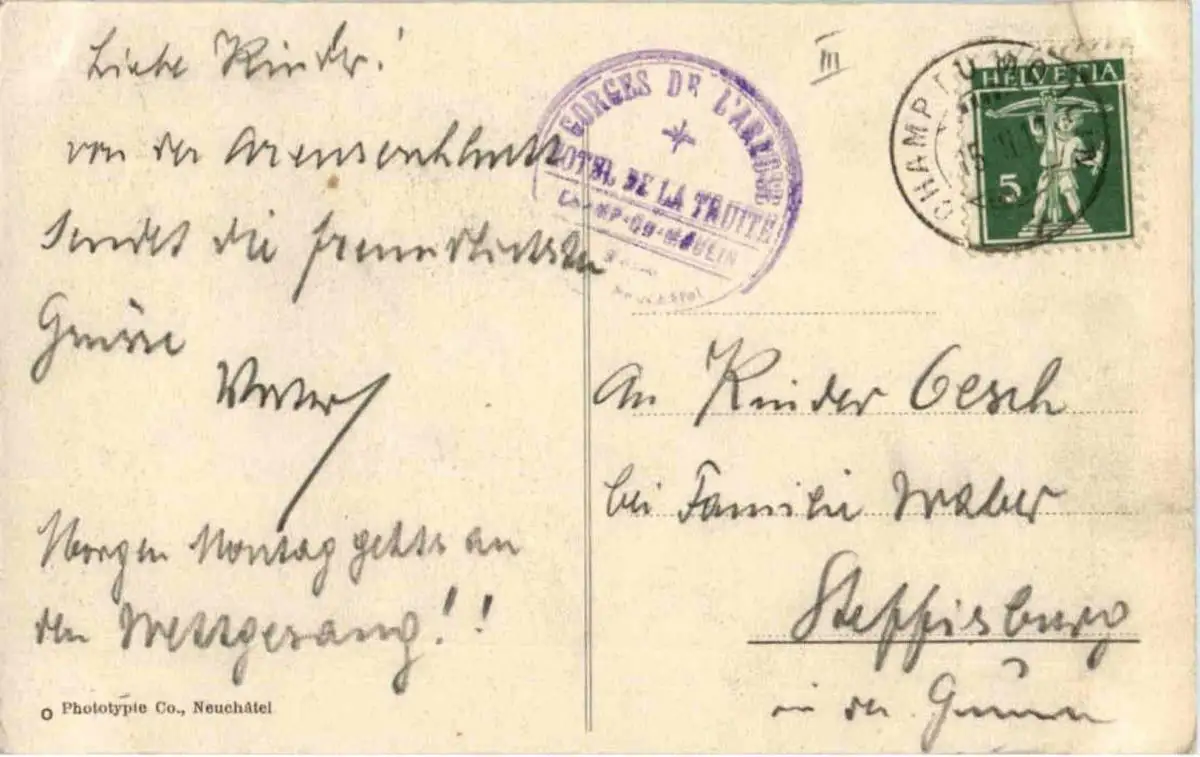 Liebe Kinder!
von der Areuseschlucht
sendet die freundlichsten
Grüsse
Vater
Morgen Montag gehts an
den Wettgesang!!
Phototypie Co., Neuchâtel
GORGES DE L'AREUSE
HOTEL DE LA TRUITE
CHAMP-DU-MOULIN
Neuchâtel
III
CHAMP DU MOULIN
HELVETIA
5
An Kinder Oesch
bei Familie Waber
Steffisburg
in der